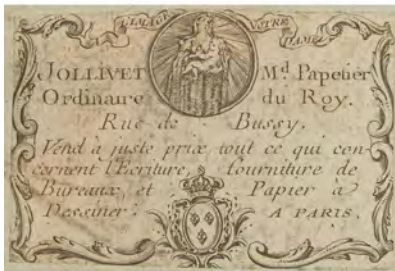 A L'IMAGE NOTRE DAME
JOLLIVET Md. Papetier
Ordinaire du Roy.
Rue de Bussy.
Vend à juste prix tout ce qui con-
cernent l'Ecriture, fourniture de
Bureaux, et Papier à
Dessiner. A PARIS.